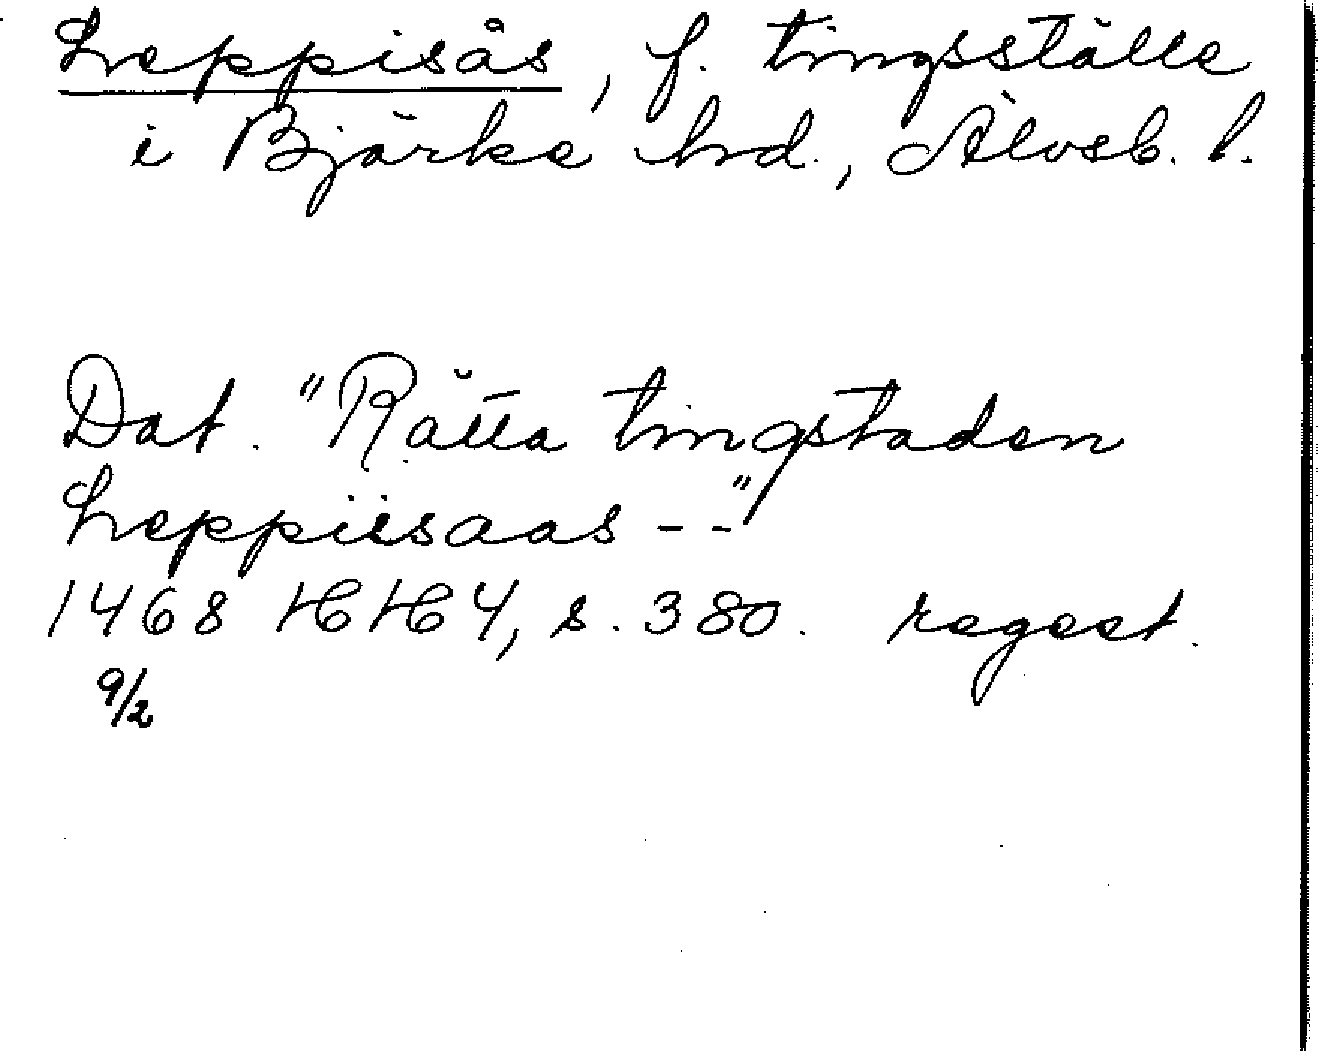 Leppisås, f. tingsställe
i Bjärke hrd., Älvsb. l.
Dat. "Rätta tingstaden
Leppiisaas - -"
1468 HH 4, s. 380. regest.
9/2